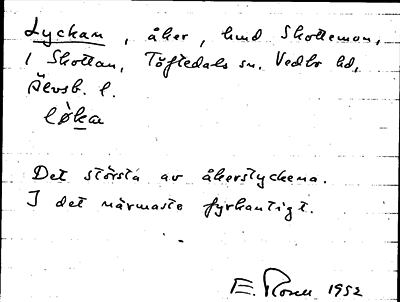 Lyckan, åker, hmd Skotteman,
i Skottan, Töftedals sn. Vedbo hd,
Älvsb. l.
lø̀ka
Det största av åkerstyckena.
I det närmaste fyrkantigt.
E. Rosell 1952